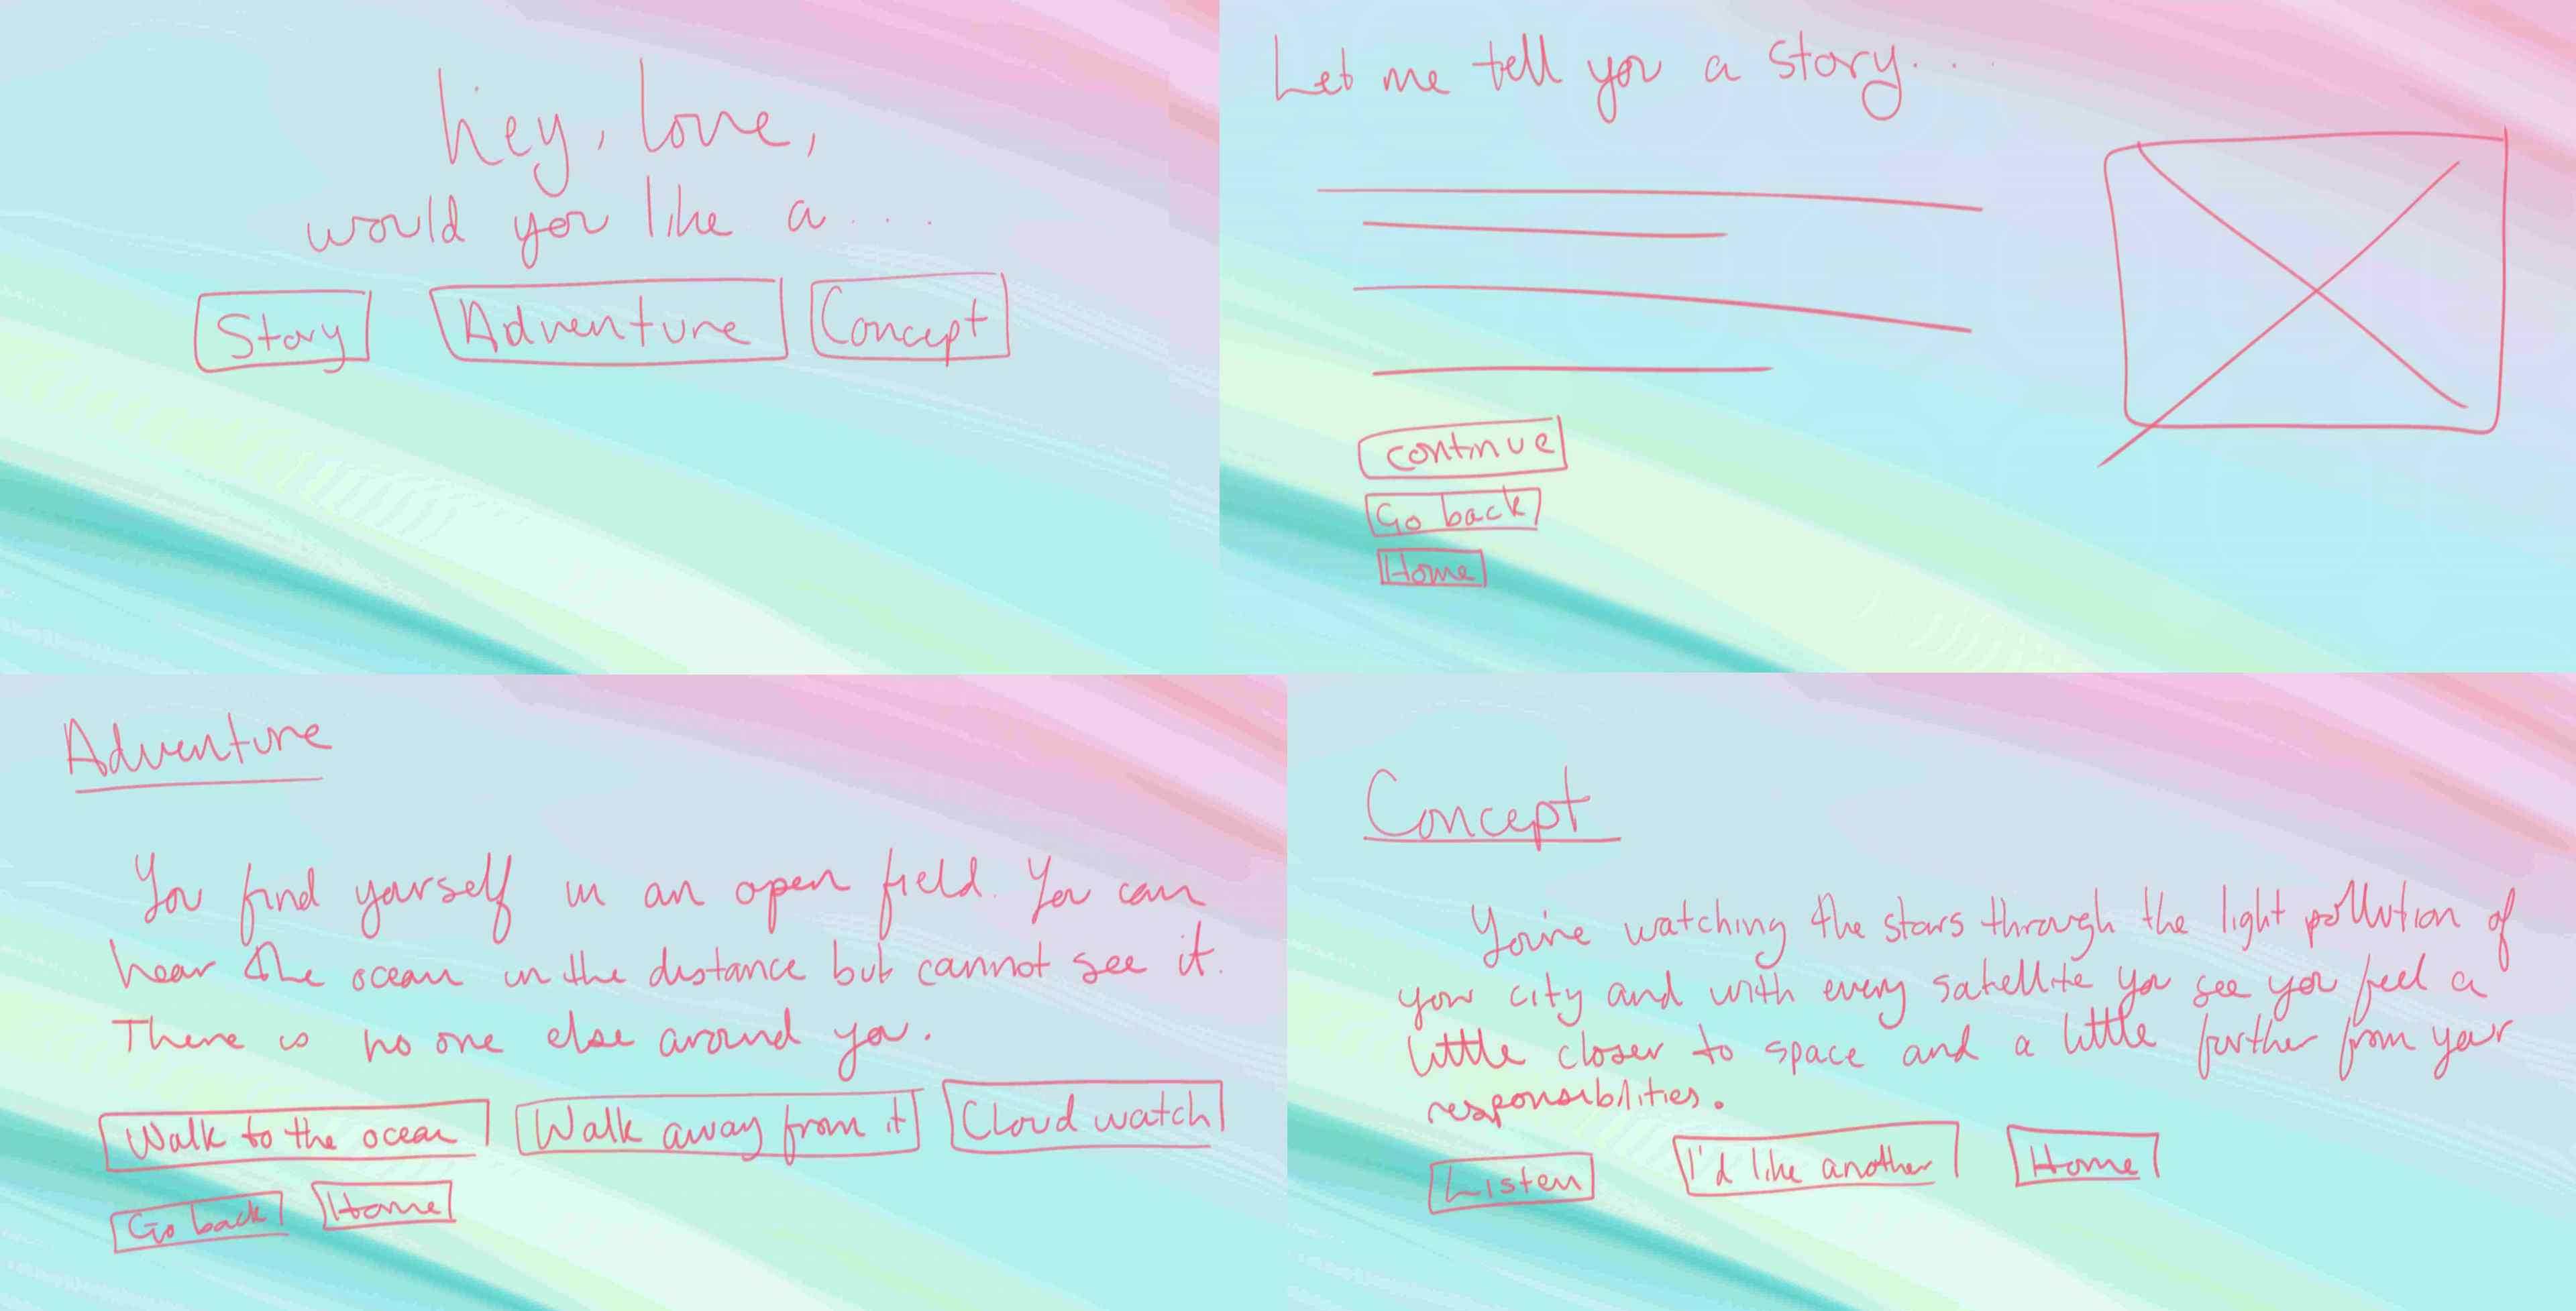 hey, love,
would you like a ...
Story Adventure Concept
Let me tell you a story...
continue
Go back
Home
Adventure
You find yourself in an open field. You can
hear the ocean in the distance but cannot see it.
There is no one else around you.
Walk to the ocean Walk away from it Cloud watch
Go back Home
Concept
You're watching the stars through the light pollution of
your city and with every satellite you see you feel a
little closer to space and a little further from your
responsibilities.
Listen I'd like another Home